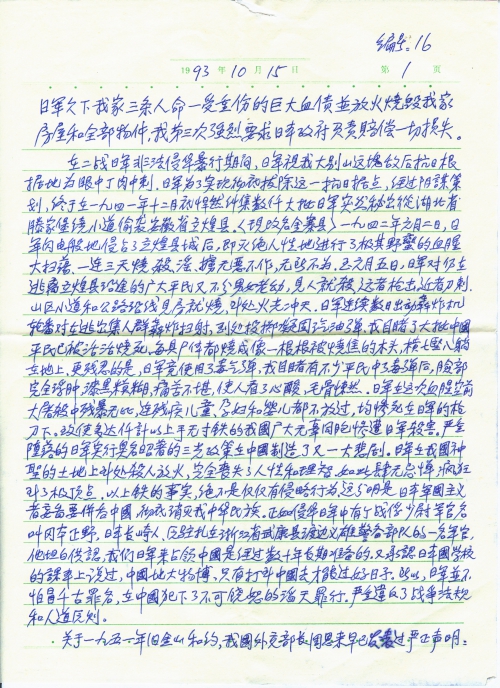 编号: 16
1993年10月15日 第1页
日军欠下我家三条人命一受重份的巨大血债並放火烧毁我家
房屋和全部物件,我第三次强烈要求日本政府负责赔偿一切损失。
在二战日军非法侵华暴行期间,日军视我大别山这块敌后抗日根
据地为眼中丁肉中刺,日军为了实现彻底拔除这一抗日据点,经过阴谋策
划,终于在一九四一年十二月底悄然纠集数件大批日军突然秘密从湖北省
滕家堡绕小道偷袭安徽省立煌县(现改名金寨县)一九四二年元月二日,日
军闪电般地侵占了立煌县城后,即灭绝人性地进行了极其野蛮的血腥
大扫荡,一连三天烧、杀、淫、掳无恶不作,无所不为,五元月五日,日军对仍在
逃离立煌县沿途的广大平民又不分男女老幼,见人就杀,远者枪击,近者刀刺
山区小道和公路沿线见房就烧,到处火光冲天,日军连续数日出动轰炸机
轮番对在逃的集人群轰炸扫射,到处投掷凝固汽油弹,我目睹了大批中国
平民已被活活烧死,每具尸体都烧成像一根根被烧焦的木头,横七竖八躺
在地上,更残忍的是,日军竟使用了毒气弹,我目睹有不少平民中了毒弹后,脸部
完全浮肿,漆黑模糊,痛苦不堪,使人看了心酸,毛骨悚然,日军在这次血腥空前
大屠杀中残暴无比,连残疾儿童,孕妇和婴儿都不放过,均惨死在日军的枪
刀下,致使多达仟计以上手无寸铁的我国广大无辜同胞惨遭日军杀害,严重
堕落的日军实行臭名昭著的三光政策在中国制造了又一大悲剧。日军在我国神
圣的土地上到处杀人放火,完全丧失了人性和理智,如此肆无忌惮,疯狂
到了极顶点,以上铁的事实,绝不是仅仅有侵略行为,这分明是日本军国主义
者妄图要併吞中国彻底消灭我中华民族,正如侵华日军中有个战俘少尉军官名
叫冈本正野,日本长崎人,
他坦白供认,我们日军来占领中国是经过数十年长期准备的,又承认日本国学校
的课本上说过,中国地大物博,只有打下中国去才能过好日子,
怕冒千古罪名,在中国犯下了不可饶恕的滔天罪行,严重违反了战争法规
和人道原则。
关于一九五一年旧金山和约,我国外交部长周恩来早已发表过严正声明: